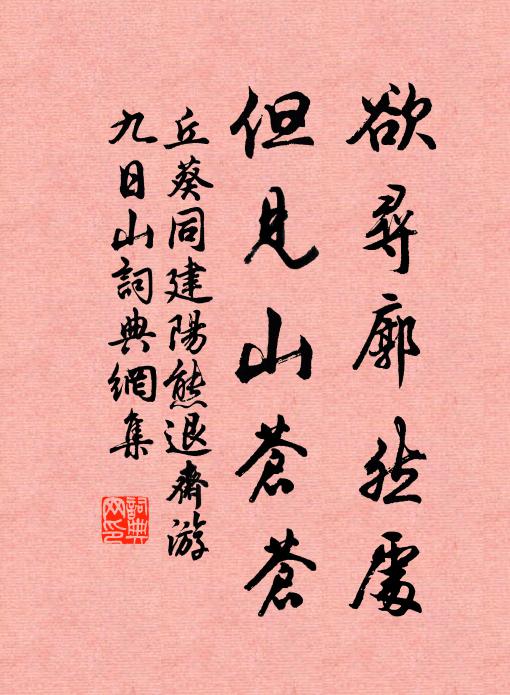 欲尋廓然處
但見山蒼蒼
丘葵同建陽熊退齋游
九日山詞典網集
詞典
网印